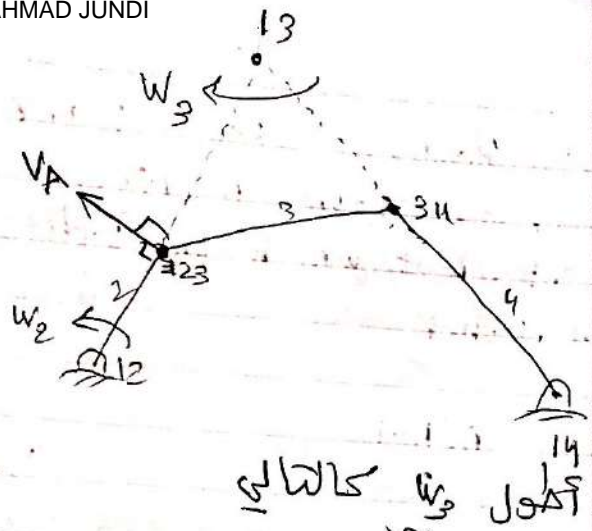 AHMAD JUNDI
13
W3
VA
3
34
23
2
4
W2
12
14
W3 كالتالي